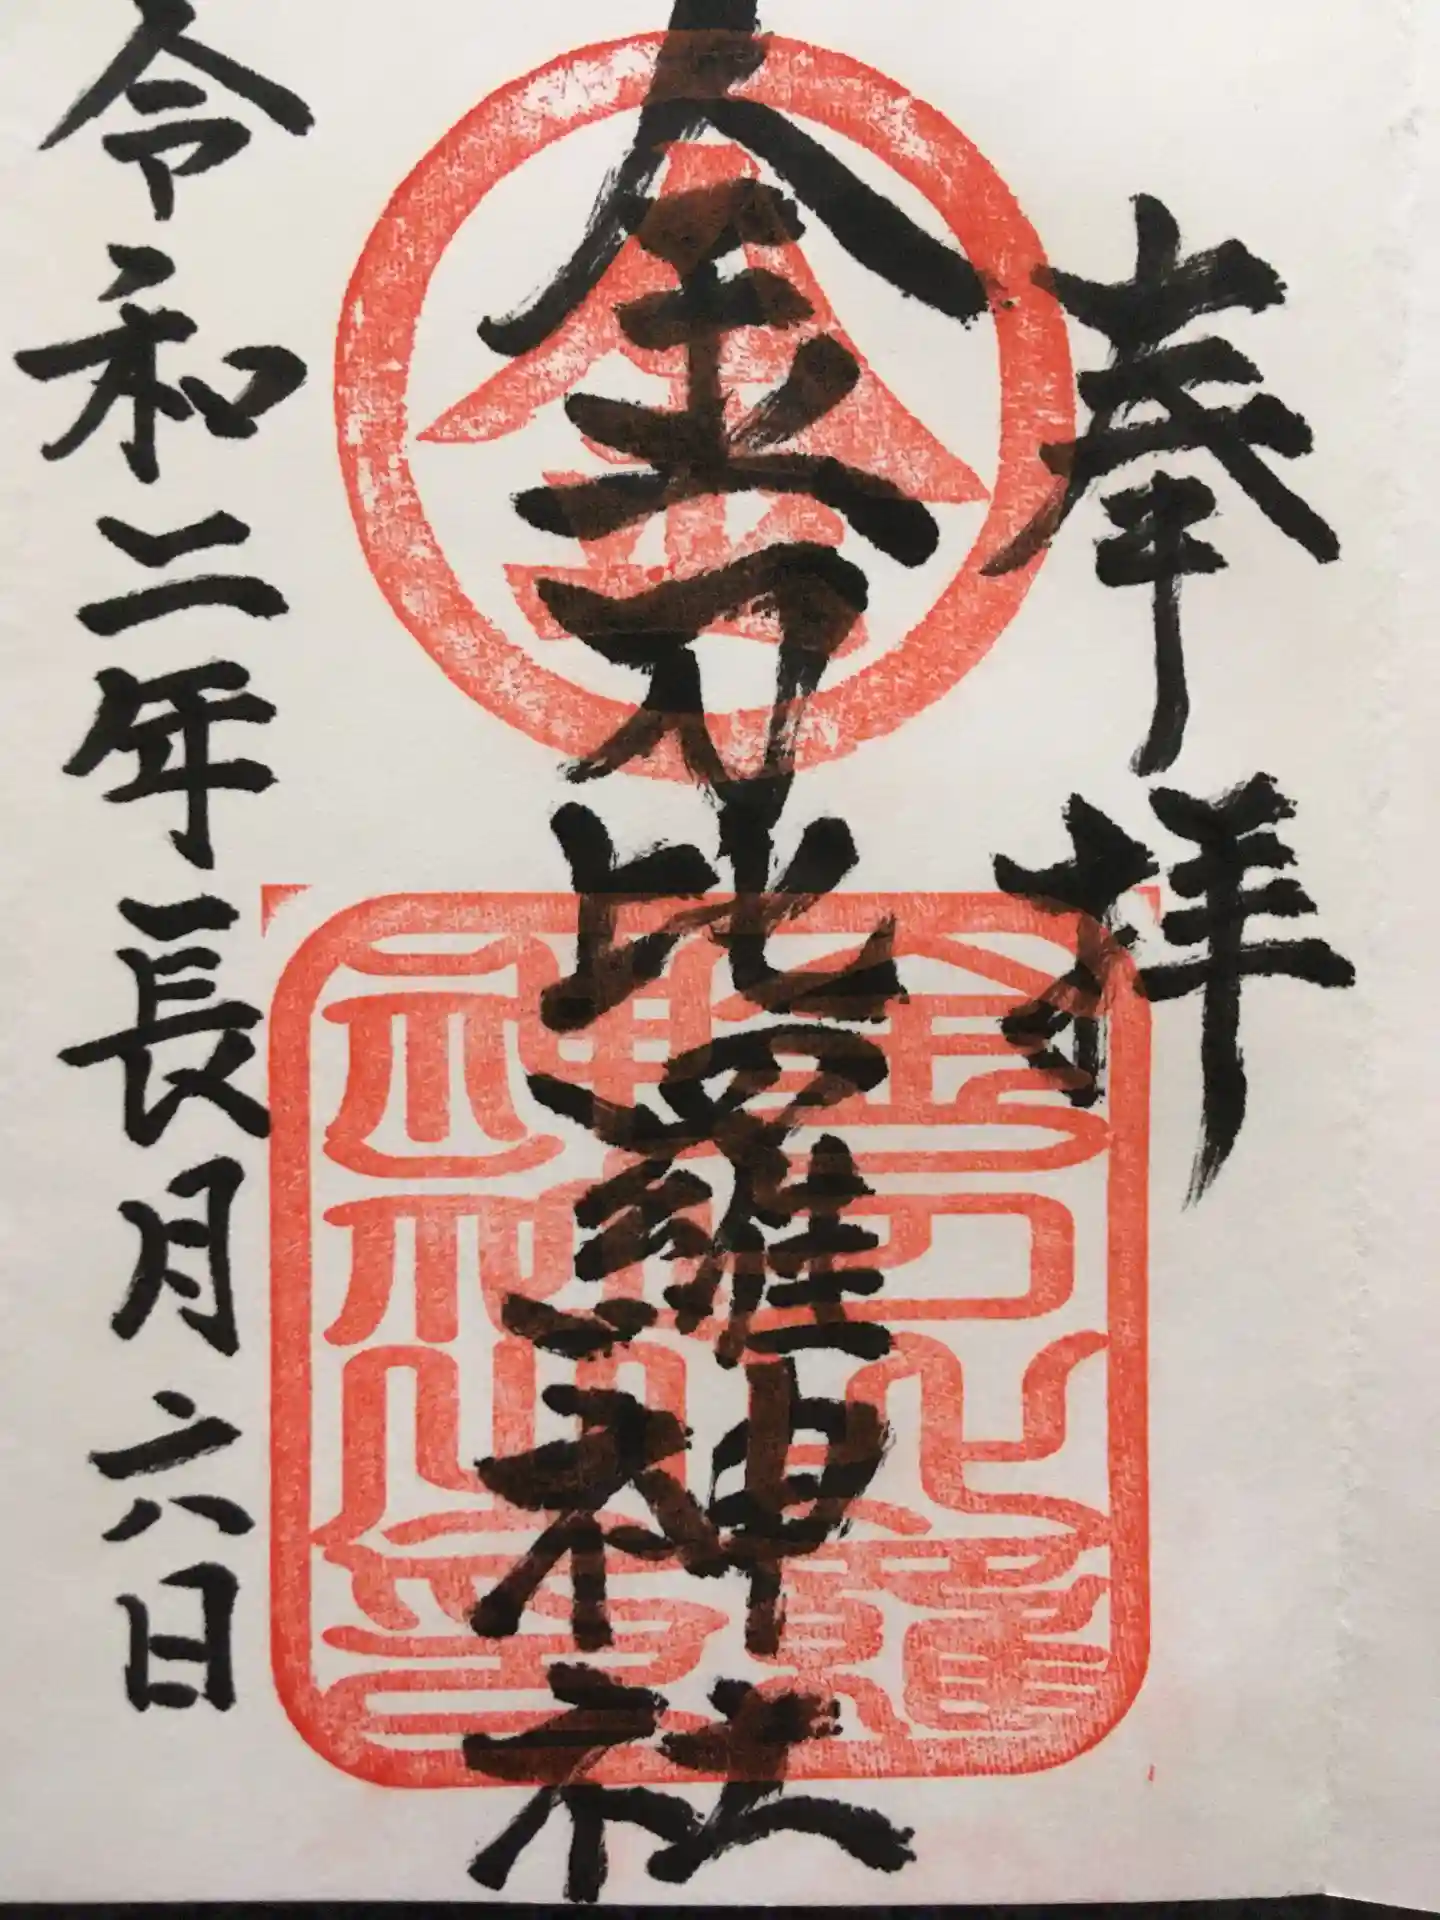 奉拝
金刀比羅神社
令和二年長月六日
金
金刀比羅
神社之印